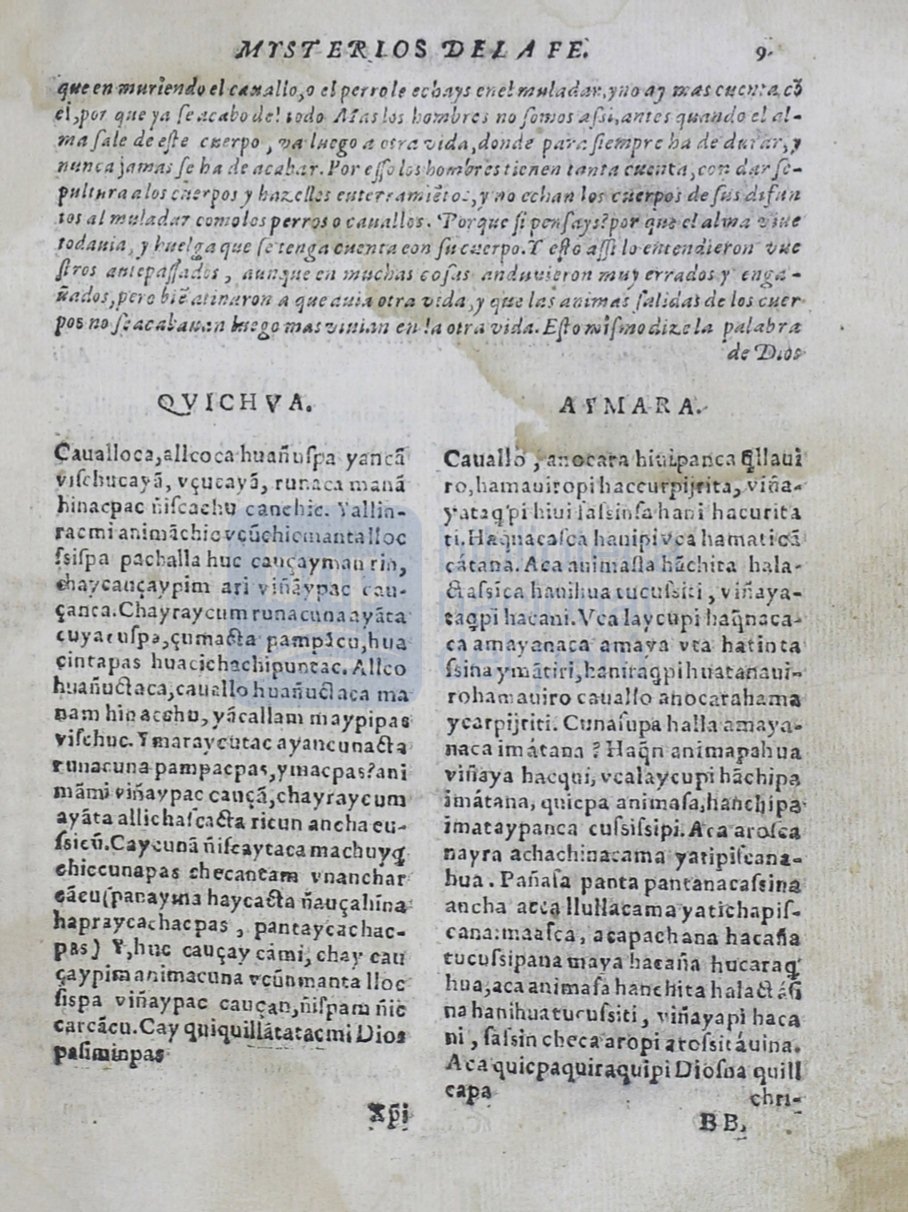 MYSTERIOS DE LA FE. 9
que en muriendo el cauallo, o el perro le echays en el muladar, y no ay mas cuenta cõ
el, por que ya se acabo del todo Mas los hombres no somos assi, antes quando el al-
ma sale de este cuerpo, va luego a otra vida, donde para siempre ha de durar, y
nunca jamas se ha de acabar. Por esso los hombres tienen tanta cuenta, con dar se-
pultura a los cuerpos y hazelles enterramiẽtos, y no echan los cuerpos de sus difun
tos al muladar como los perros o cauallos. Porque si pensays? por que el alma viue
todauia, y huelga que se tenga cuenta con su cuerpo. Y esto assi lo entendieron vue
stros antepassados, aunque en muchas cosas anduuieron muy errados y enga-
ñados, pero biẽ atinaron a que auia otra vida, y que las animas salidas de los cuer
pos no se acabauan luego mas viuian en la otra vida. Esto mismo dize la palabra
de Dios
QVICHVA.
Caualloca, allcoca huañuspa yancã
viſchucayã, vçucayã, runaca manã
hinacpac ñiſcachu canchic. Yallin-
racmi animãchic vcũchicmanta lloc
ſsiſpa pachalla huc cauçayman rin,
chaycauçaypim ari viñaypac cau-
çanca. Chayraycum runacuna ayãta
cuyacuſpa, çumacta pampãcu, hua
cintapas huacichachipuntac. Allco
huañuctaca, cauallo huañuctaca ma
nam hinacchu, yãcallam maypipas
viſchuc. Ymaraycutac ayancunacta
runacuna pampacpas, ymacpas? ani
mãmi viñaypac cauçã, chayraycum
ayãta allichaſcacta ricun ancha cu-
ſsicũ. Caycunã ñiſcaytaca machuyq̃
chiccunapas checantam vnanchar
cãcu (panayma haycacta ñauçahina
hapraycachacpas, pantaycachac-
pas) Y, huc cauçay cãmi, chay cau
çaypim animacuna vcũnmanta lloc
ſispa viñaypac cauçan, ñiſpam ñic
carcãcu. Cay quiquillãtatacmi Dios
paſiminpas
Xp̃i
AYMARA.
Cauallo, anocara hiuipanca q̃llaui
ro, hamauiropi haccurpijrita, viña-
yataq̃pi hiui ſaſsinſa hani hacurita
ti. Haq̃nacaſca hauipi vca hamaticã
cátana. Aca animaſſa hãchita hala-
ctaſsica hanihua tucuſsiti, viñaya-
taqpi hacani. Vca laycupi haq̃naca-
ca amayanaca amaya vta hatinta
ſsina ymãtiri, haniraqpi huatanaui-
rohamauiro cauallo anocarahama
ycarpijriti. Cunaſupa halla amaya-
naca imátana? Haq̃n animapahua
viñaya hacqui, vcalaycupi hãchipa
imátana, quicpa animaſa, hanchipa
imataypanca cuſsiſsipi. Aca aroſca
nayra achachinacama yatipiſcana-
hua. Pañaſa panta pantanacaſsina
ancha acca llullacama yatichapiſ-
cana: maaſca, acapachana hacaña
tucuſsipana maya hacaña hucaraq̃
hua, aca animaſa hanchita halactáſi
na hanihua tucuſsiti, viñayapi haca
ni, ſaſsin checa aropi aroſsitáuina.
Aca quicpaquiraquipi Dioſna quill
capa
chri-
BB,